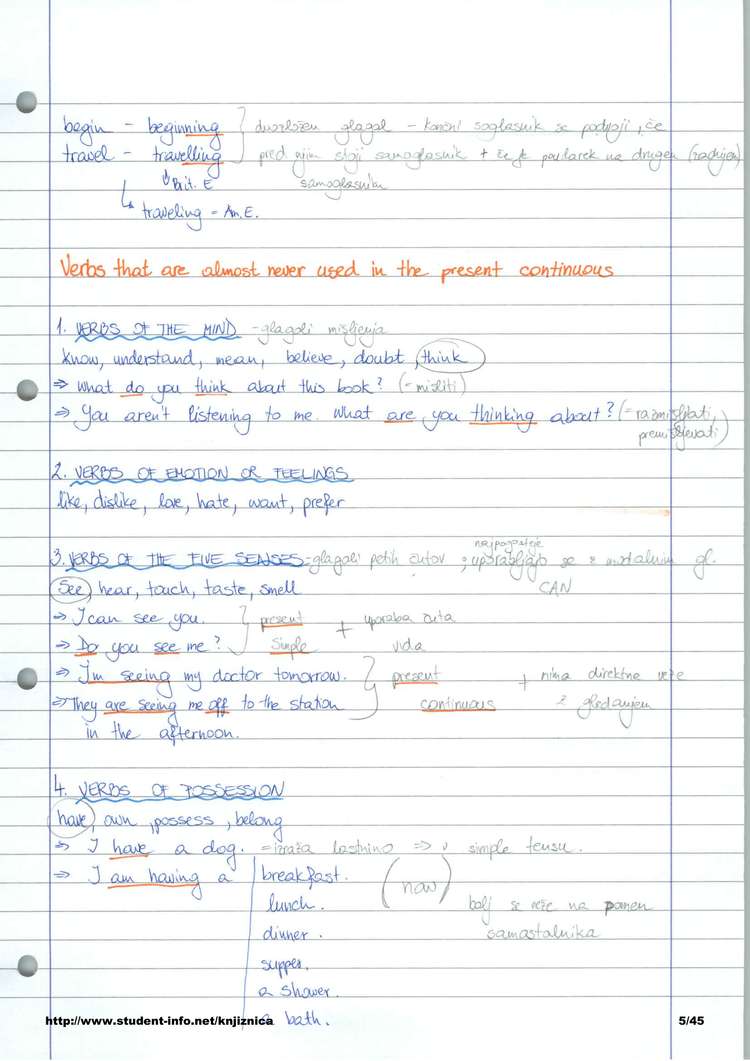 begin - beginning } dvozložen glagol - končni soglasnik se podvoji, če
travel - travelling } pred njim stoji samoglasnik + če je poudarek na drugem (zadnjem)
Brit. E samoglasniku
traveling = Am.E.
Verbs that are almost never used in the present continuous
1. VERBS OF THE MIND - glagoli mišljenja
know, understand, mean, believe, doubt, think
⇒ What do you think about this book? (= misliti)
⇒ You aren't listening to me. What are you thinking about? (= razmišljati,
premišljevati)
2. VERBS OF EMOTION OR FEELINGS
like, dislike, love, hate, want, prefer
najpogosteje
3. VERBS OF THE FIVE SENSES - glagoli petih čutov; uporabljajo se z modalnim gl.
See, hear, touch, taste, smell CAN
⇒ I can see you. } present + uporaba čuta
⇒ Do you see me? } simple vida
⇒ I'm seeing my doctor tomorrow. } present + nima direktne veze
⇒ They are seeing me off to the station } continuous z gledanjem
in the afternoon.
4. VERBS OF POSSESSION
have, own, possess, belong
⇒ I have a dog. = izraža lastnino ⇒ v simple tensu.
⇒ I am having a breakfast. (now)
lunch. bolj se veže na pomen
dinner. samostalnika
supper.
a shower.
a bath.
http://www.student-info.net/knjiznica 5/45